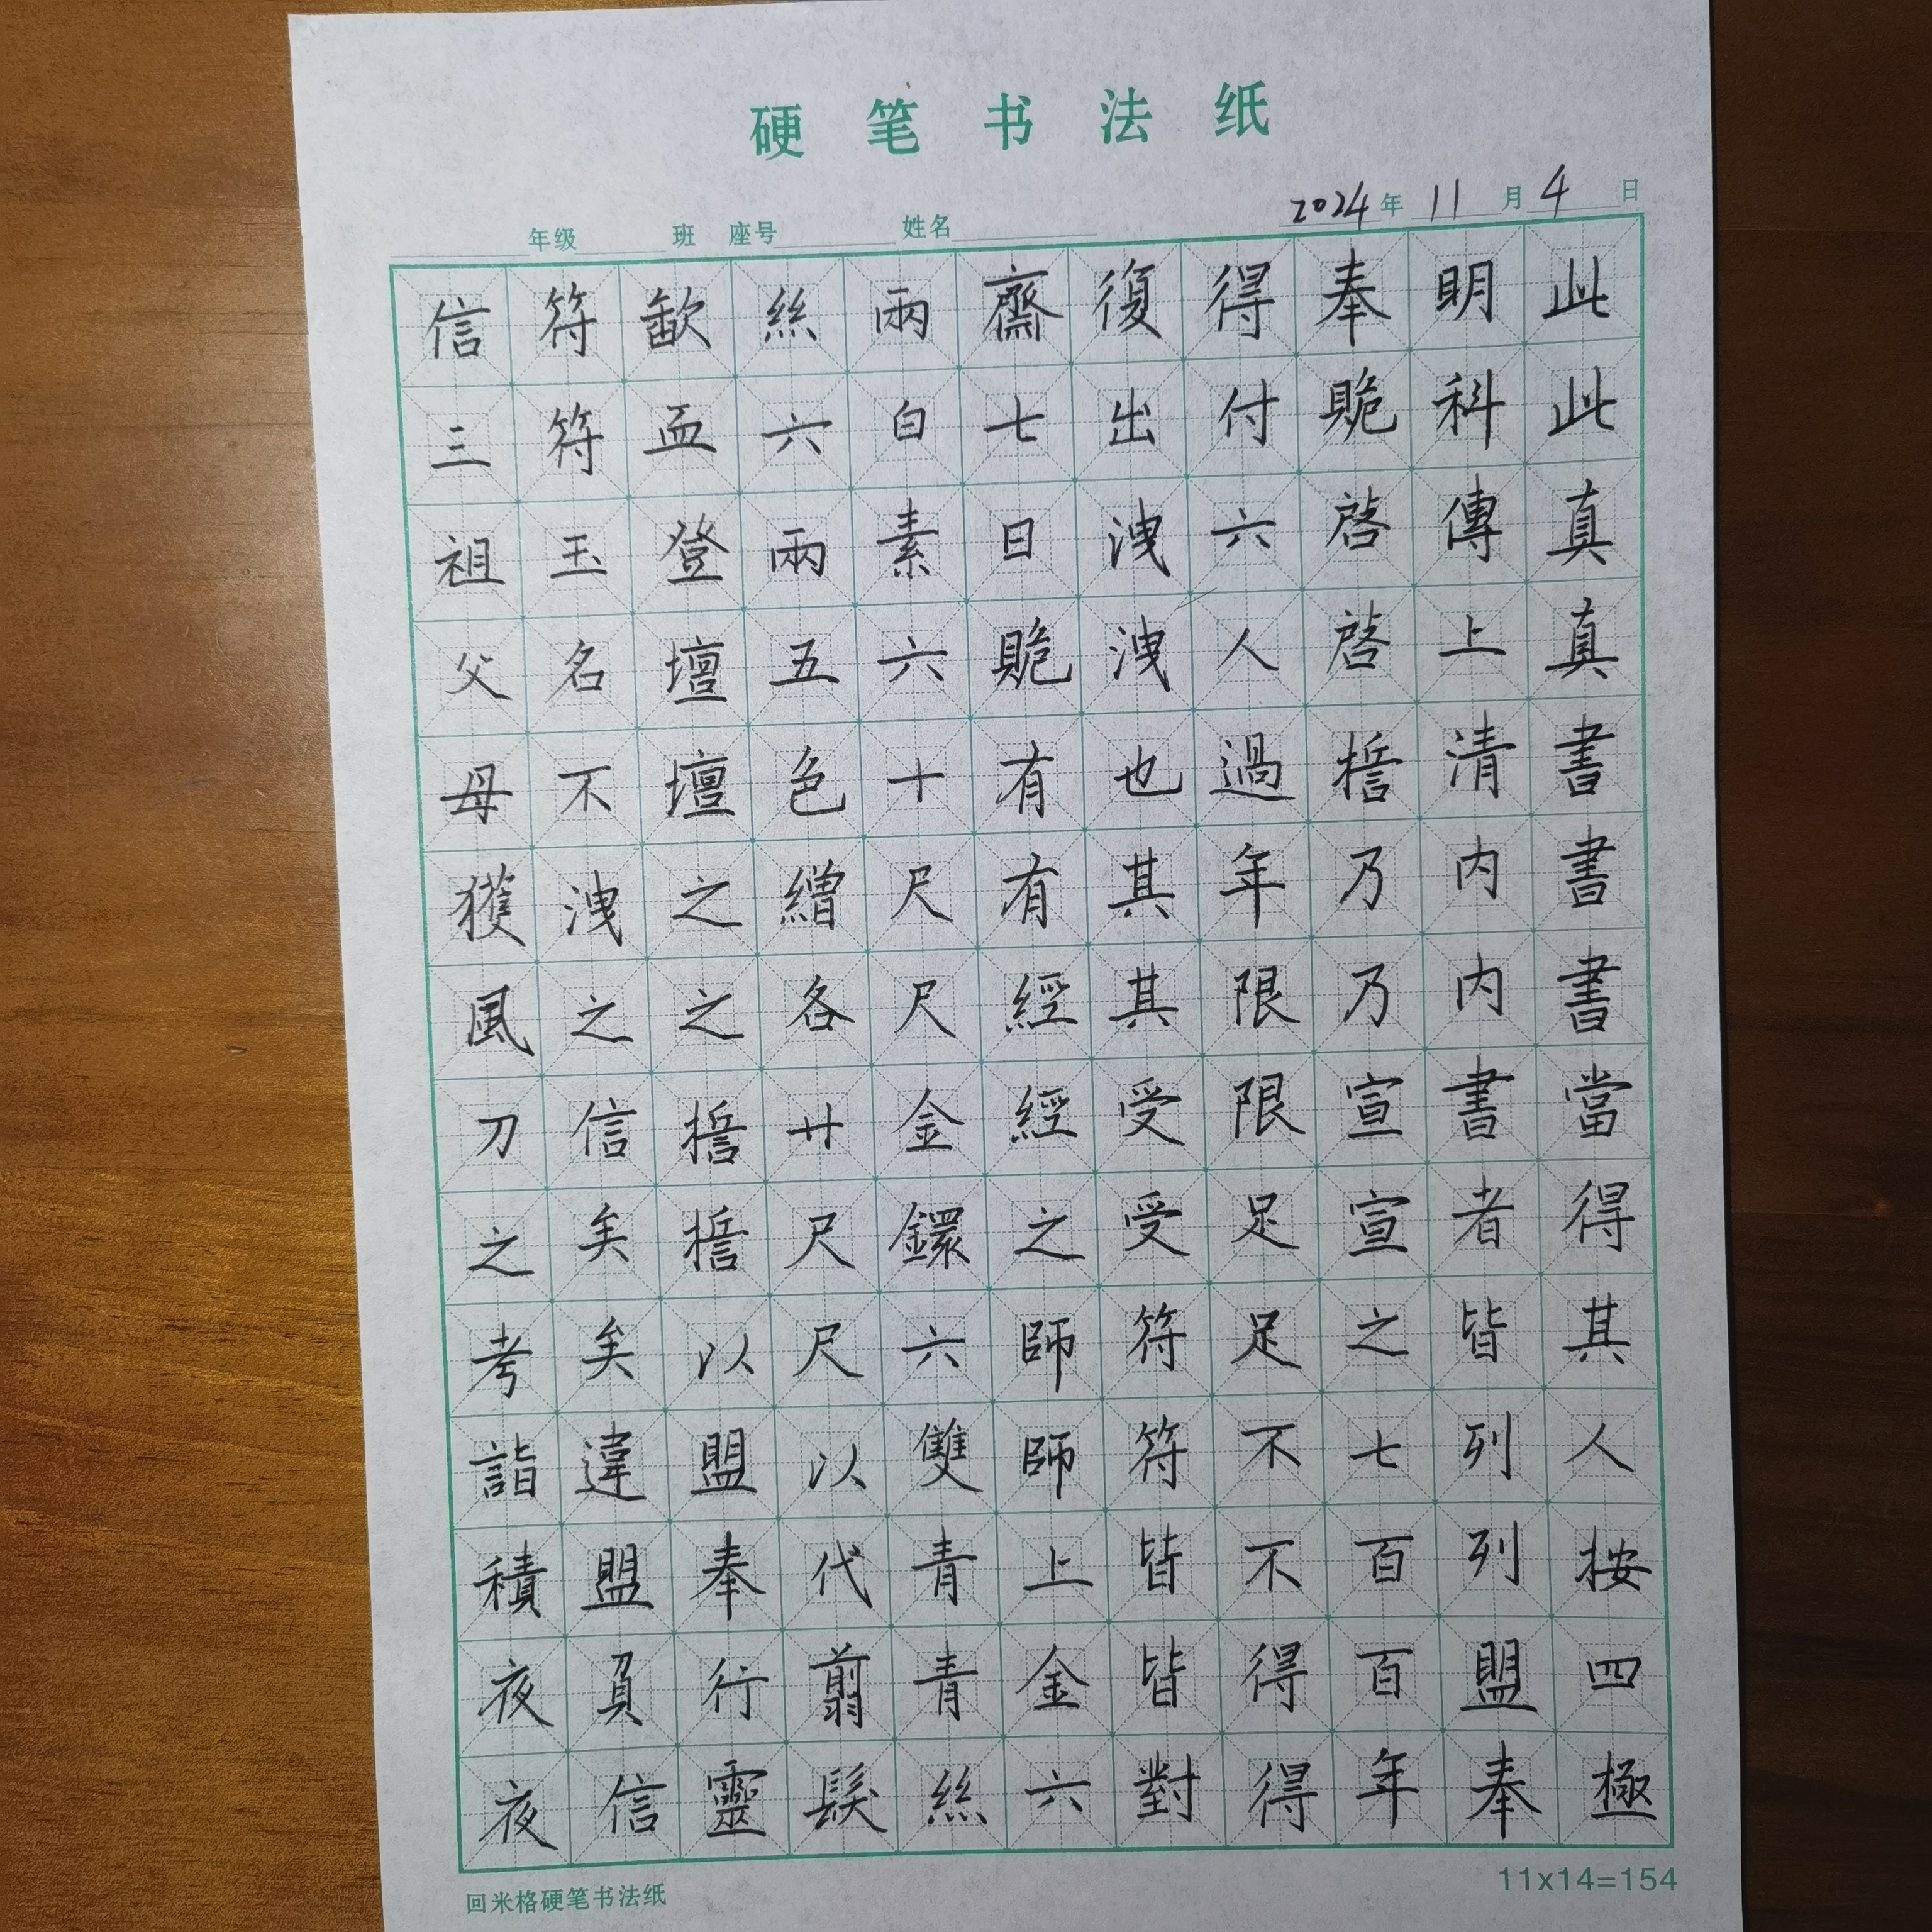 硬笔书法纸
年级 班 座号 姓名 2024年11月4日
此此真真書書書當得其人按四極
明科傳上清内内書者皆列列盟奉
奉跪啓啓擔乃乃宣宣之七百百年
得付六人過年限限足足不不得得
復出洩洩也其其受受符符皆皆對
齋七日跪有有經經之師師上金六
兩白素六十尺尺金鐶六雙青青絲
絲六兩五色繒各廿尺尺以代翦髮
歃血登壇壇之之擔擔以盟奉行靈
符符玉名不洩之信矣矣違盟負信
信三祖父母獲風刀之考詣積夜夜
回米格硬笔书法纸
11x14=154